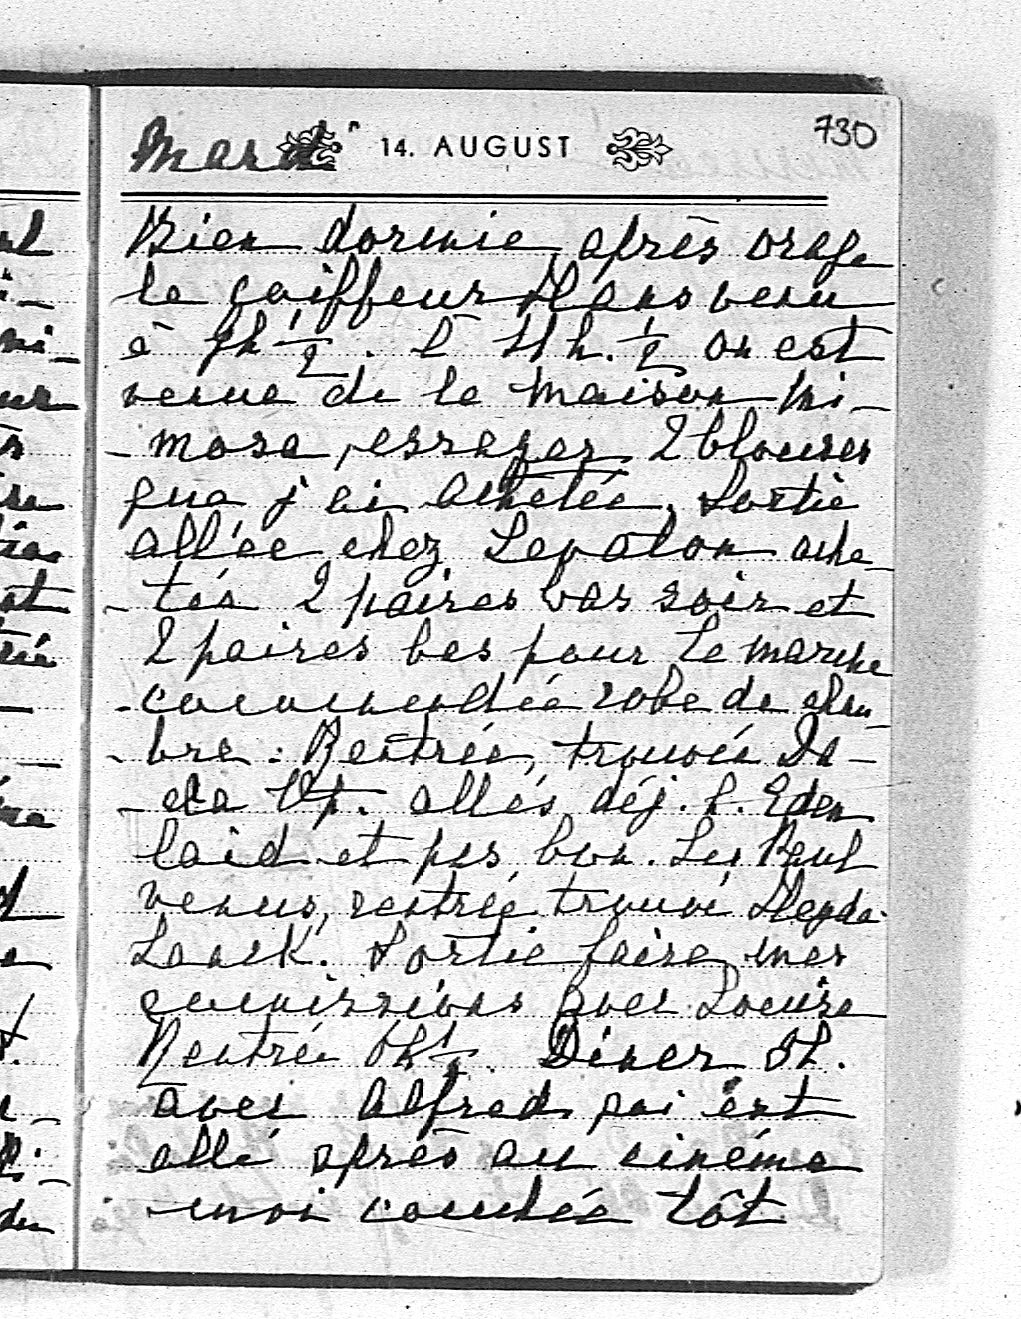 Mardi 14. AUGUST 730
Bien dormie, après orage
le coiffeur Hans venu
à 9h ½. à 11h. ½ on est
venue de la maison Mi-
- mosa, essayer 2 blouses
que j'ai achetée, Sortie
allée chez Lepolon ache
- tée 2 paires bas soir et
2 paires bas pour le marche
- commendée robe de cham-
- bre. Rentrée, trouvée Da-
allés déj. h. Eden
laid et pas bon. Les Paul
venus, rentrée trouvé Magda
Sortie faire mes
commissions avec Louise
Rentrée 6h½. Diner 8h.
avec Alfred, qui est
allé après au cinéma
- moi couchée tôt